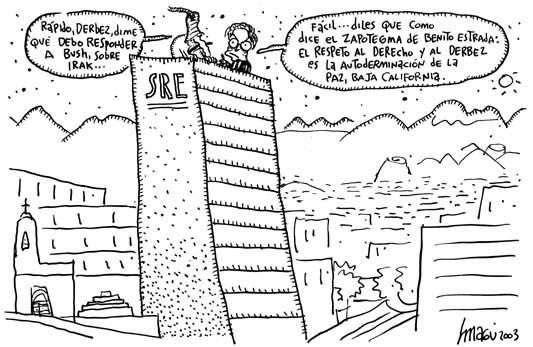 RÁPIDO, DERBEZ, DIME
QUÉ DEBO RESPONDER
A BUSH, SOBRE
IRAK...
FÁCIL... DILES QUE COMO
DICE EL ZAPOTEGMA DE BENITO ESTRADA:
EL RESPETO AL DERECHO Y AL DERBEZ
ES LA AUTODERMINACIÓN DE LA
PAZ, BAJA CALIFORNIA.
SRE
2003